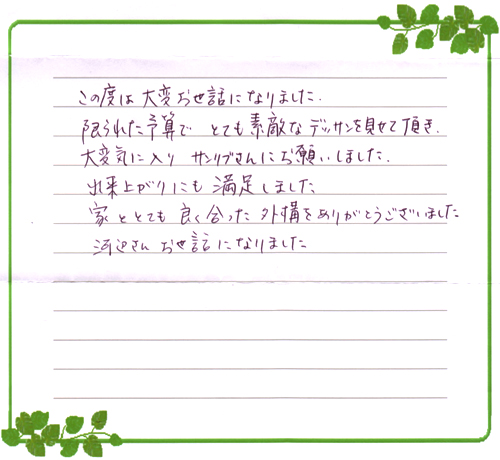 この度は大変お世話になりました.
限られた予算で とても素敵なデッサンを見せて頂き.
大変気に入り サンリブさんにお願いしました.
出来上がりにも 満足しました
家ととても良く合った外構をありがとうございました
河辺さん お世話になりました